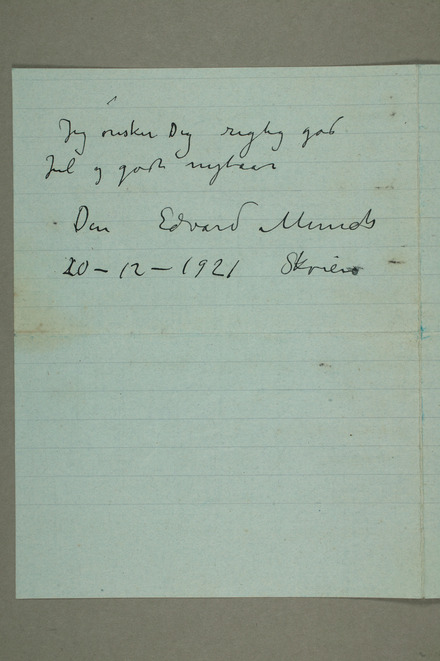 Jeg ønsker Dig rigtig god
Jul og godt nytaar
Din Edvard Munch
20 – 12 – 1921